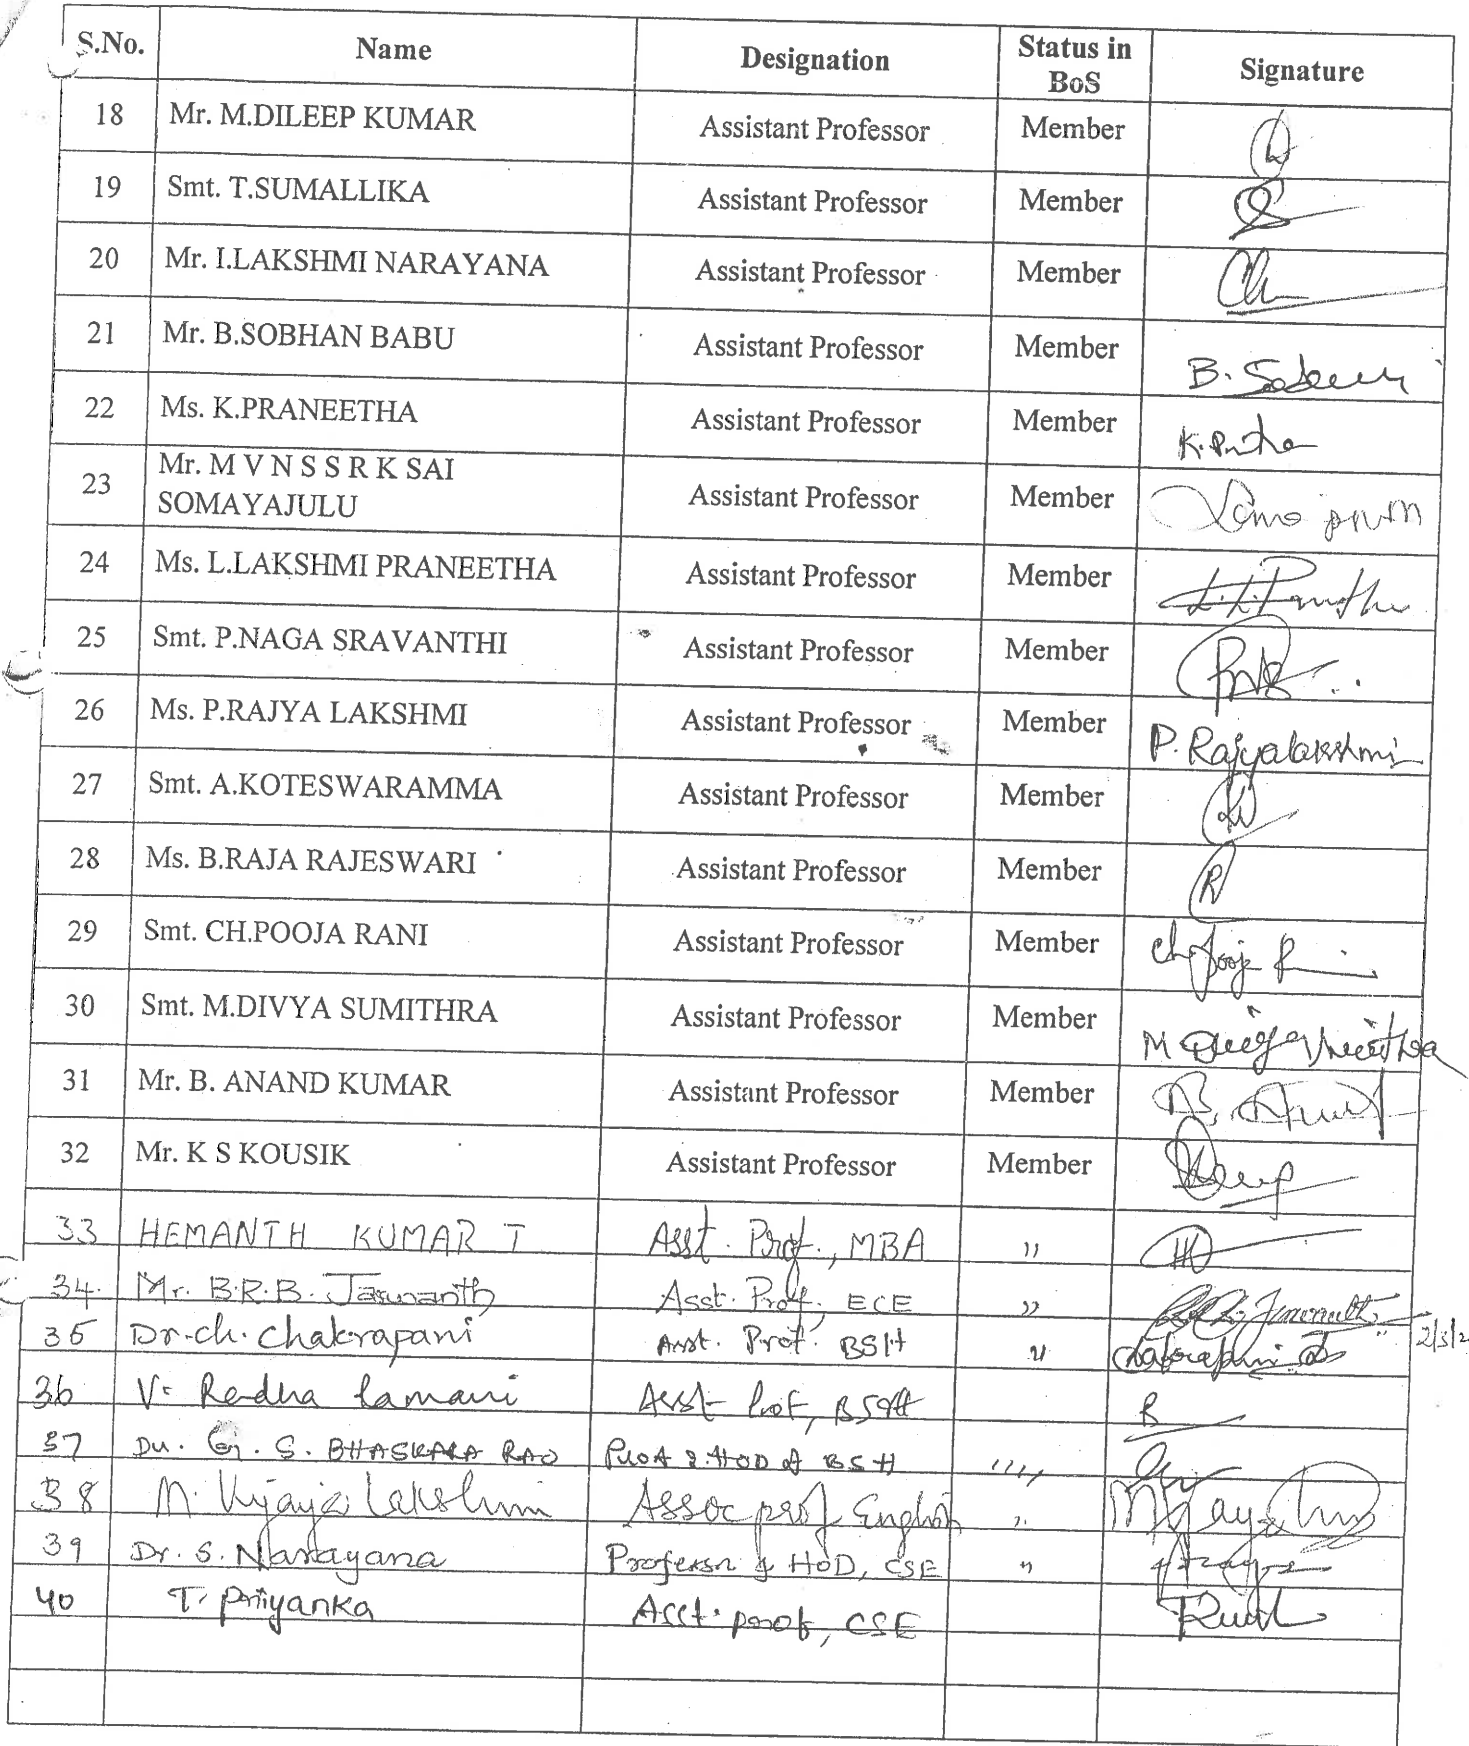 S.No. Name Designation Status in BoS Signature
18 Mr. M.DILEEP KUMAR Assistant Professor Member
19 Smt. T.SUMALLIKA Assistant Professor Member
20 Mr. I.LAKSHMI NARAYANA Assistant Professor Member
21 Mr. B.SOBHAN BABU Assistant Professor Member B.
22 Ms. K.PRANEETHA Assistant Professor Member K.
23 Mr. M V N S S R K SAI
SOMAYAJULU Assistant Professor Member
24 Ms. L.LAKSHMI PRANEETHA Assistant Professor Member
25 Smt. P.NAGA SRAVANTHI Assistant Professor Member
26 Ms. P.RAJYA LAKSHMI Assistant Professor Member P. Rajyalakshmi
27 Smt. A.KOTESWARAMMA Assistant Professor Member
28 Ms. B.RAJA RAJESWARI Assistant Professor Member
29 Smt. CH.POOJA RANI Assistant Professor Member
30 Smt. M.DIVYA SUMITHRA Assistant Professor Member M
31 Mr. B. ANAND KUMAR Assistant Professor Member
32 Mr. K S KOUSIK Assistant Professor Member
33 HEMANTH KUMAR T Asst. Prof., MBA "
34. Mr. B.R.B. Jaswanth Asst. Prof, ECE "
35 Dr. ch. chakrapani Asst. Prof. BSH "
36 V. Radha Ramani Asst Prof, BS&H R
37 Dr. G. S. BHASKARA RAO Prof & HOD of BSH "
38 M. Vijaya Lakshmi Assoc prof English "
39 Dr. S. Narayana Professor & HOD, CSE "
40 T. Priyanka Asst. prof, CSE